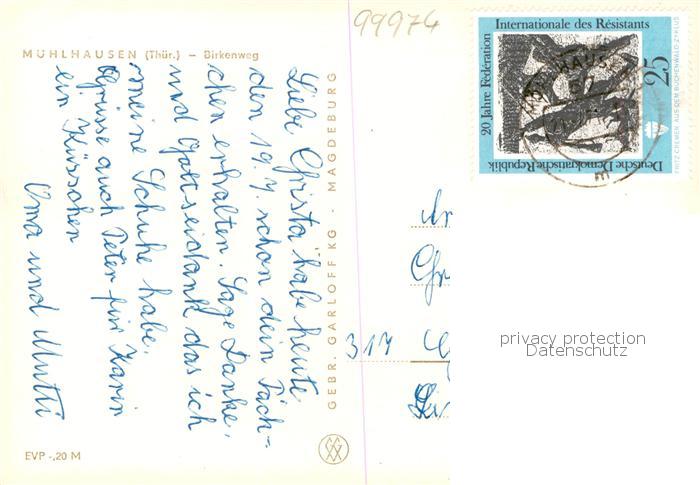 99974
MÜHLHAUSEN (Thür.) – Birkenweg
Liebe Christa habe heute
den 19.7. schon dein Päck-
chen erhalten. Sage Danke,
und Gottseidank das ich
meine Schuhe habe.
Grüsse auch Peter für Karin
ein Küsschen
Oma und Mutti
GEBR. GARLOFF KG · MAGDEBURG
EVP -,20 M
20 Jahre Fédération
Internationale des Résistants
25
FRITZ CREMER AUS DEM BUCHENWALD-ZYKLUS
Deutsche Demokratische Republik
Gr
317
privacy protection
Datenschutz